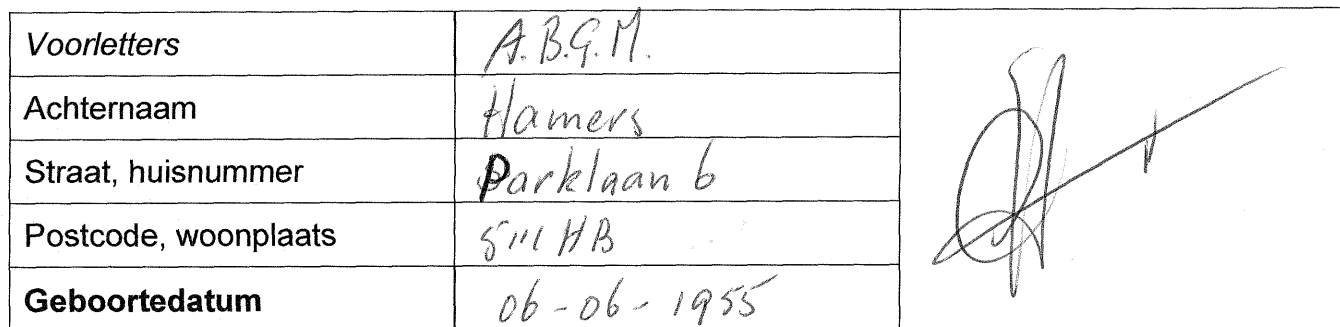 Voorletters A.B.G.M.
Achternaam Hamers
Straat, huisnummer Parklaan 6
Postcode, woonplaats 5111 HB
Geboortedatum 06-06-1955